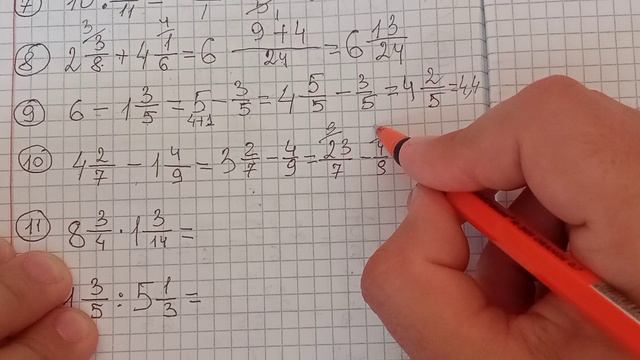 ⑧ 2 3/8 + 4 1/6 = 6 (9+4)/24 = 6 13/24
⑨ 6 - 1 3/5 = 5 - 3/5 = 4 5/5 - 3/5 = 4 2/5 = 4,4
4+1
⑩ 4 2/7 - 1 4/9 = 3 2/7 - 4/9 = 23/7 - 4/9
⑪ 8 3/4 · 1 3/14 =
1 3/5 : 5 1/3 =